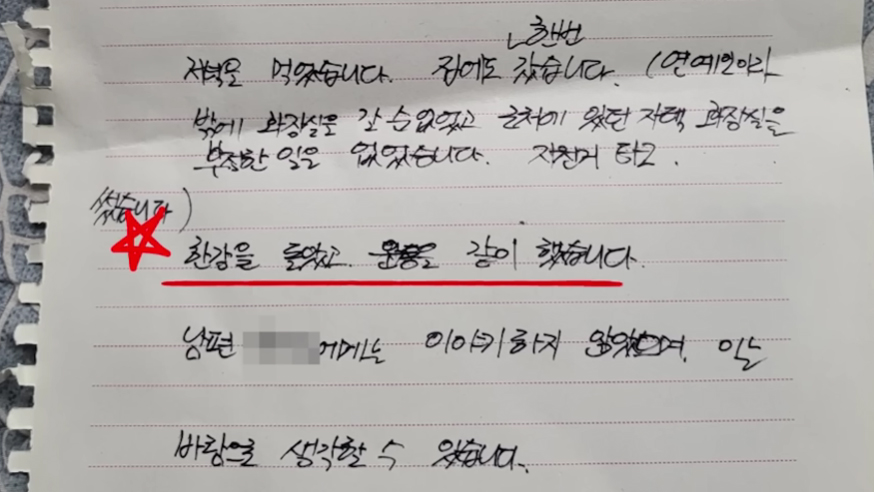 한번
저녁을 먹었습니다. 집에도 갔습니다. (연예인이라
밖에 화장실을 갈 수 없었고 근처에 있던 자택 화장실을
부정한 일은 없었습니다. 자전거 타고.
썼습니다)
한강을 돌았고. 운동을 같이 했습니다.
남편 에게는 이야기하지 않았으며, 이는
바람으로 생각할 수 있습니다.